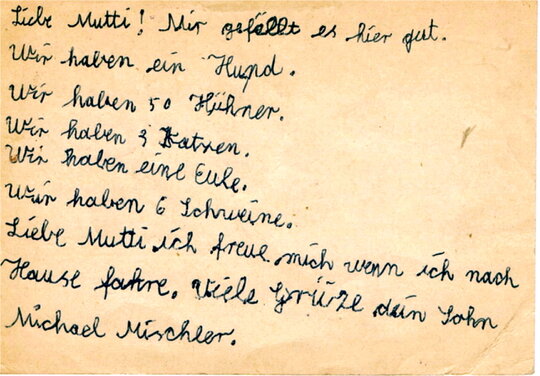 Liebe Mutti! Mir gefällt es hier gut.
Wir haben ein Hund.
Wir haben 50 Hühner.
Wir haben 3 Katzen.
Wir haben eine Eule.
Wir haben 6 Schweine.
Liebe Mutti ich freue mich wenn ich nach
Hause fahre. Viele Grüze dein Sohn
Michael Mischler.